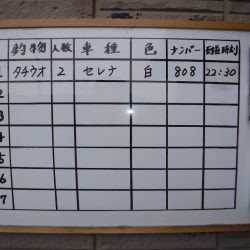 釣物 人数 車種 色 ナンバー 到着時刻
1 タチウオ 2 セレナ 白 808 22:30
2
3
4
5
6
7